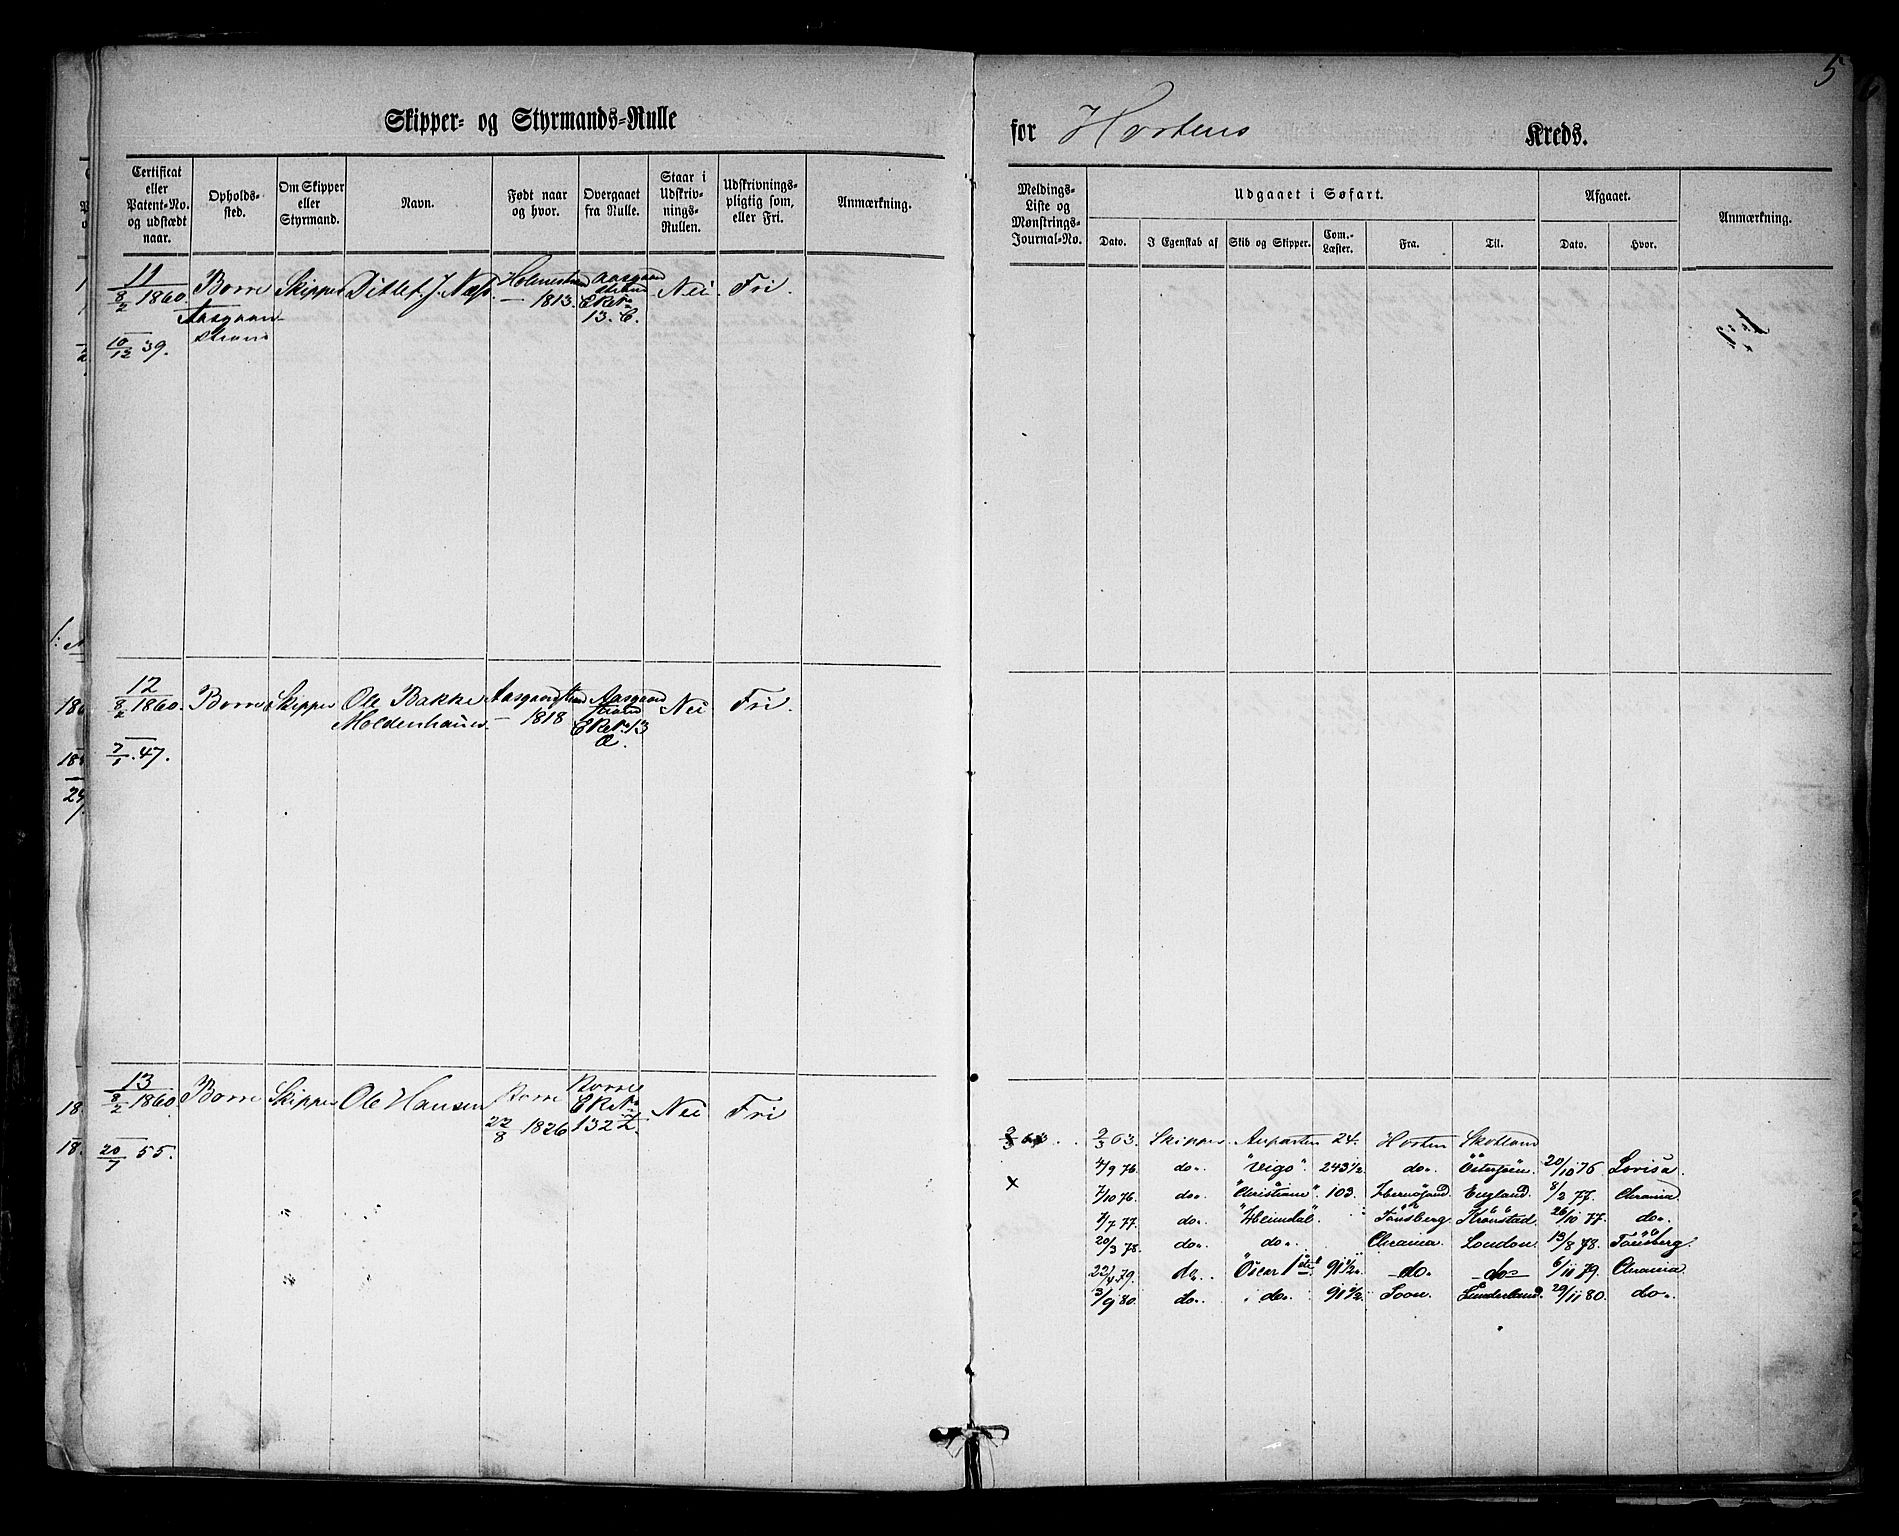 5
Skipper- og Styrmands-Rulle
for Hortens Kreds.
Certificat eller Patent-No. og udstædt naar.
Opholds-sted.
Om Skipper eller Styrmand.
Navn.
Født naar og hvor.
Overgaaet fra Rulle.
Staar i Udskriv-nings-Rullen.
Udskrivnings-pligtig som, eller Fri.
Anmærkning.
Meldings-Liste og Mønstrings-Journal-No.
Udgaaet i Søfart.
Dato. I Egenskab af Skib og Skipper. Com.-Læster. Fra. Til.
Afgaaet.
Dato. Hvor.
Anmærkning.
11
8/2 1860. Borre Skipper Ditlef J. Næss. Holmestrand Aasgaard Nei Fri.
Aasgaard- — 1813. strand
strand 13. C.
10/12 39.
12
8/2 1860. Borre Skipper Ole Bakke Aasgaardstrand Aasgaard Nei Fri.
Moldenhauer. — 1818 strand
13
7/1. 47.
13
8/2 1860. Borre Skipper Ole Hansen Borre Borre Nei Fri
22/8 1826 132
20/7 55.
2/3 63. 2/3 63. Skipper 24. Horten Skotland
4/9 76. do. "Vigo". 243 1/2 do. Østersjøen 20/10 76 Lovisa.
x 7/10 76. do. "Christiane". 103. Hernøsand. England. 8/2 77. Chrania
7/7 77. do. "Heimdal". Tönsberg. Kronstad. 26/10 77. do.
20/3 78. do. do. Chrania. London. 13/8 78. Tönsberg.
22/4 79. do. Oscar 1ste 91 1/2. do. do 6/11 79. Chrania
3/9 80. do. do. 91 1/2. Soon. Sunderland. 29/11 80. do.